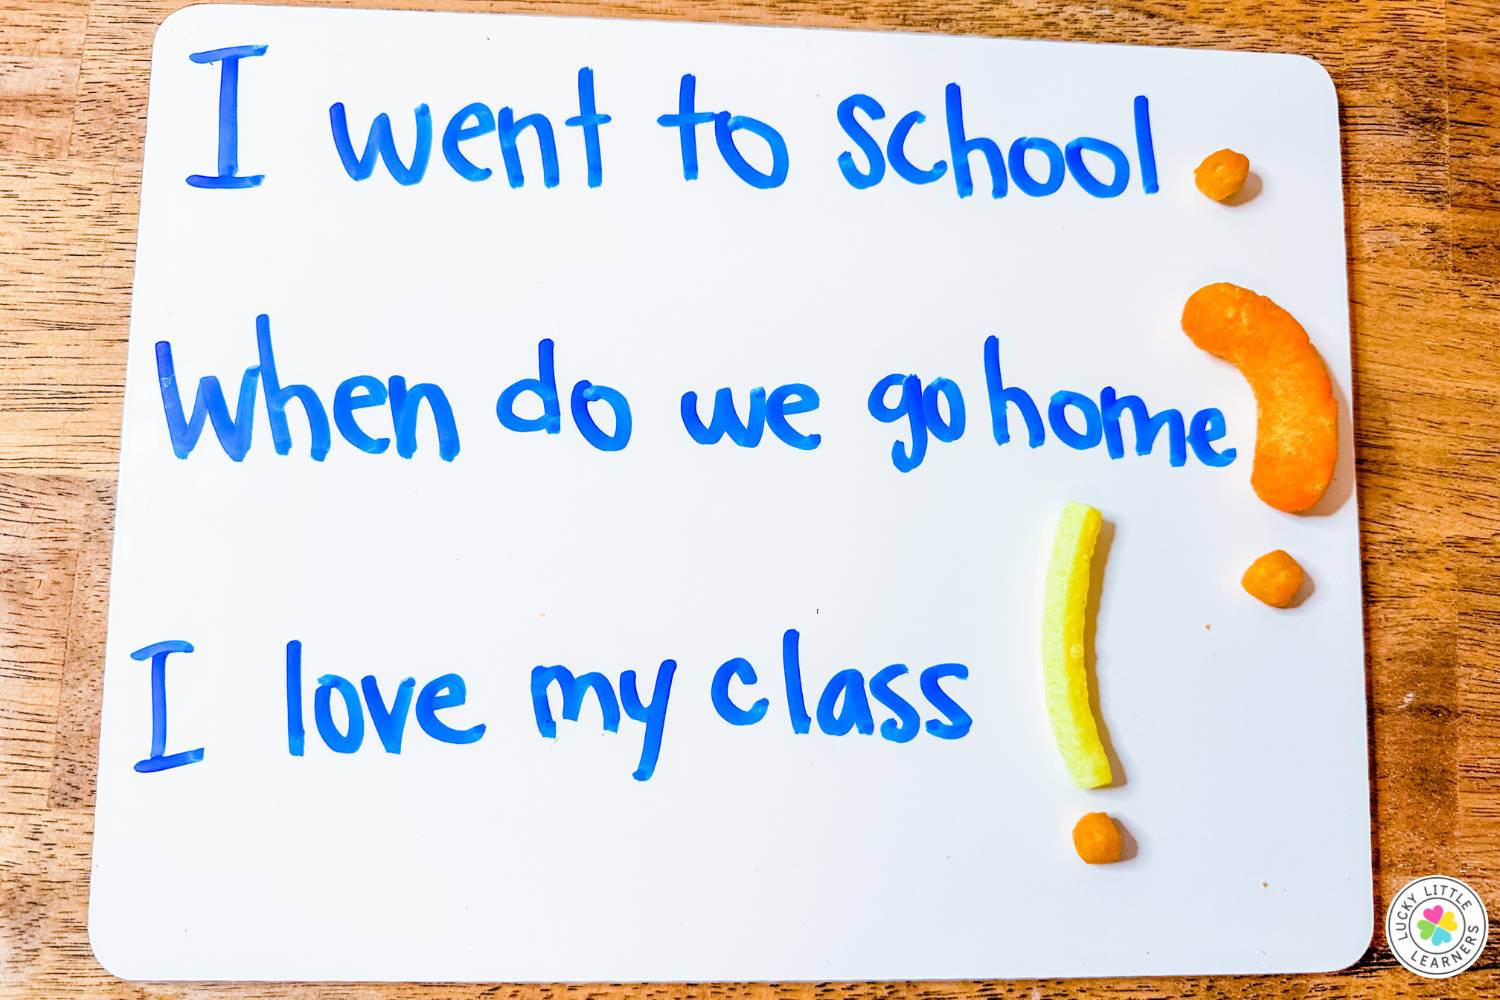 I went to school.
When do we go home?
I love my class!
LUCKY LITTLE LEARNERS